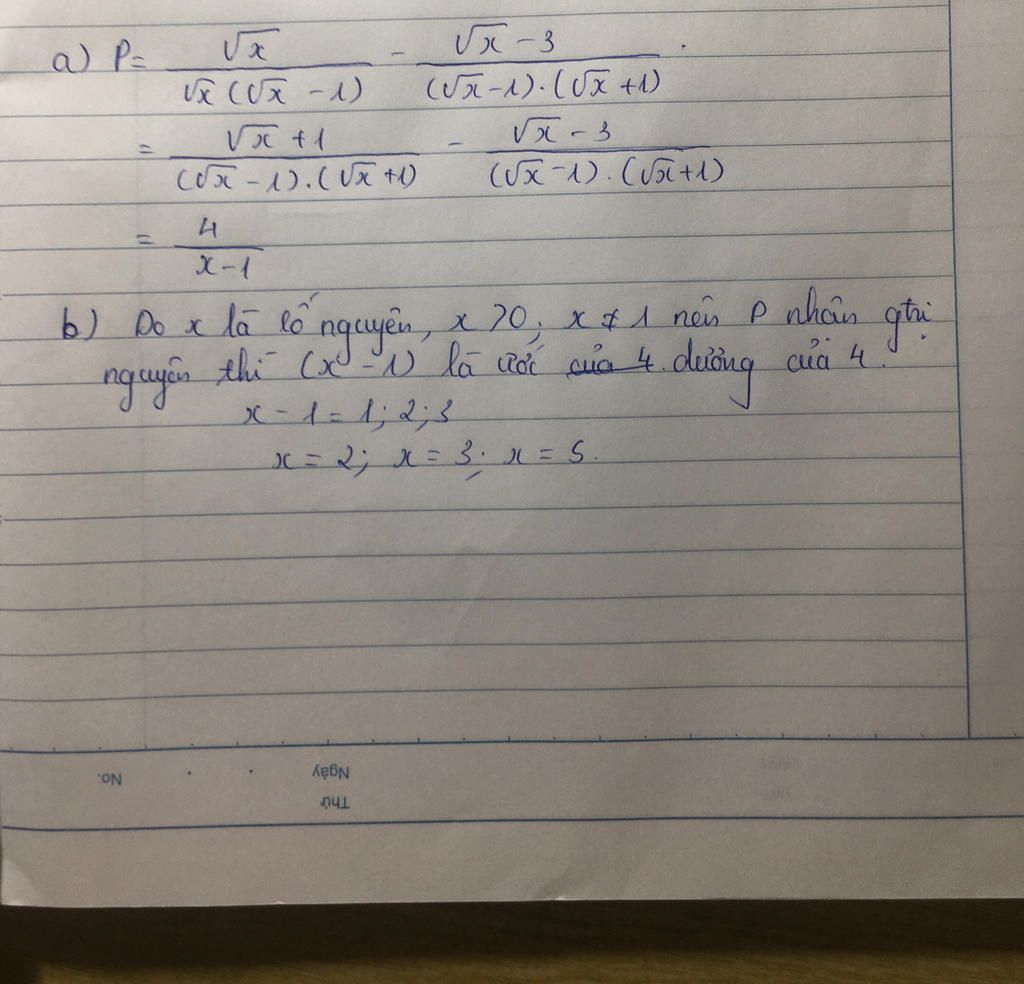 a) P = √x / (√x (√x - 1)) - (√x - 3) / ((√x - 1).(√x + 1)) .
= (√x + 1) / ((√x - 1).(√x + 1)) - (√x - 3) / ((√x - 1).(√x + 1))
= 4 / (x - 1)
b) Do x là số nguyên, x > 0; x ≠ 1 nên P nhân gtrị
nguyên thì (x - 1) là ước của 4 dương của 4.
x - 1 = 1; 2; 3
x = 2; x = 3; x = 5.
Thứ
Ngày
No.